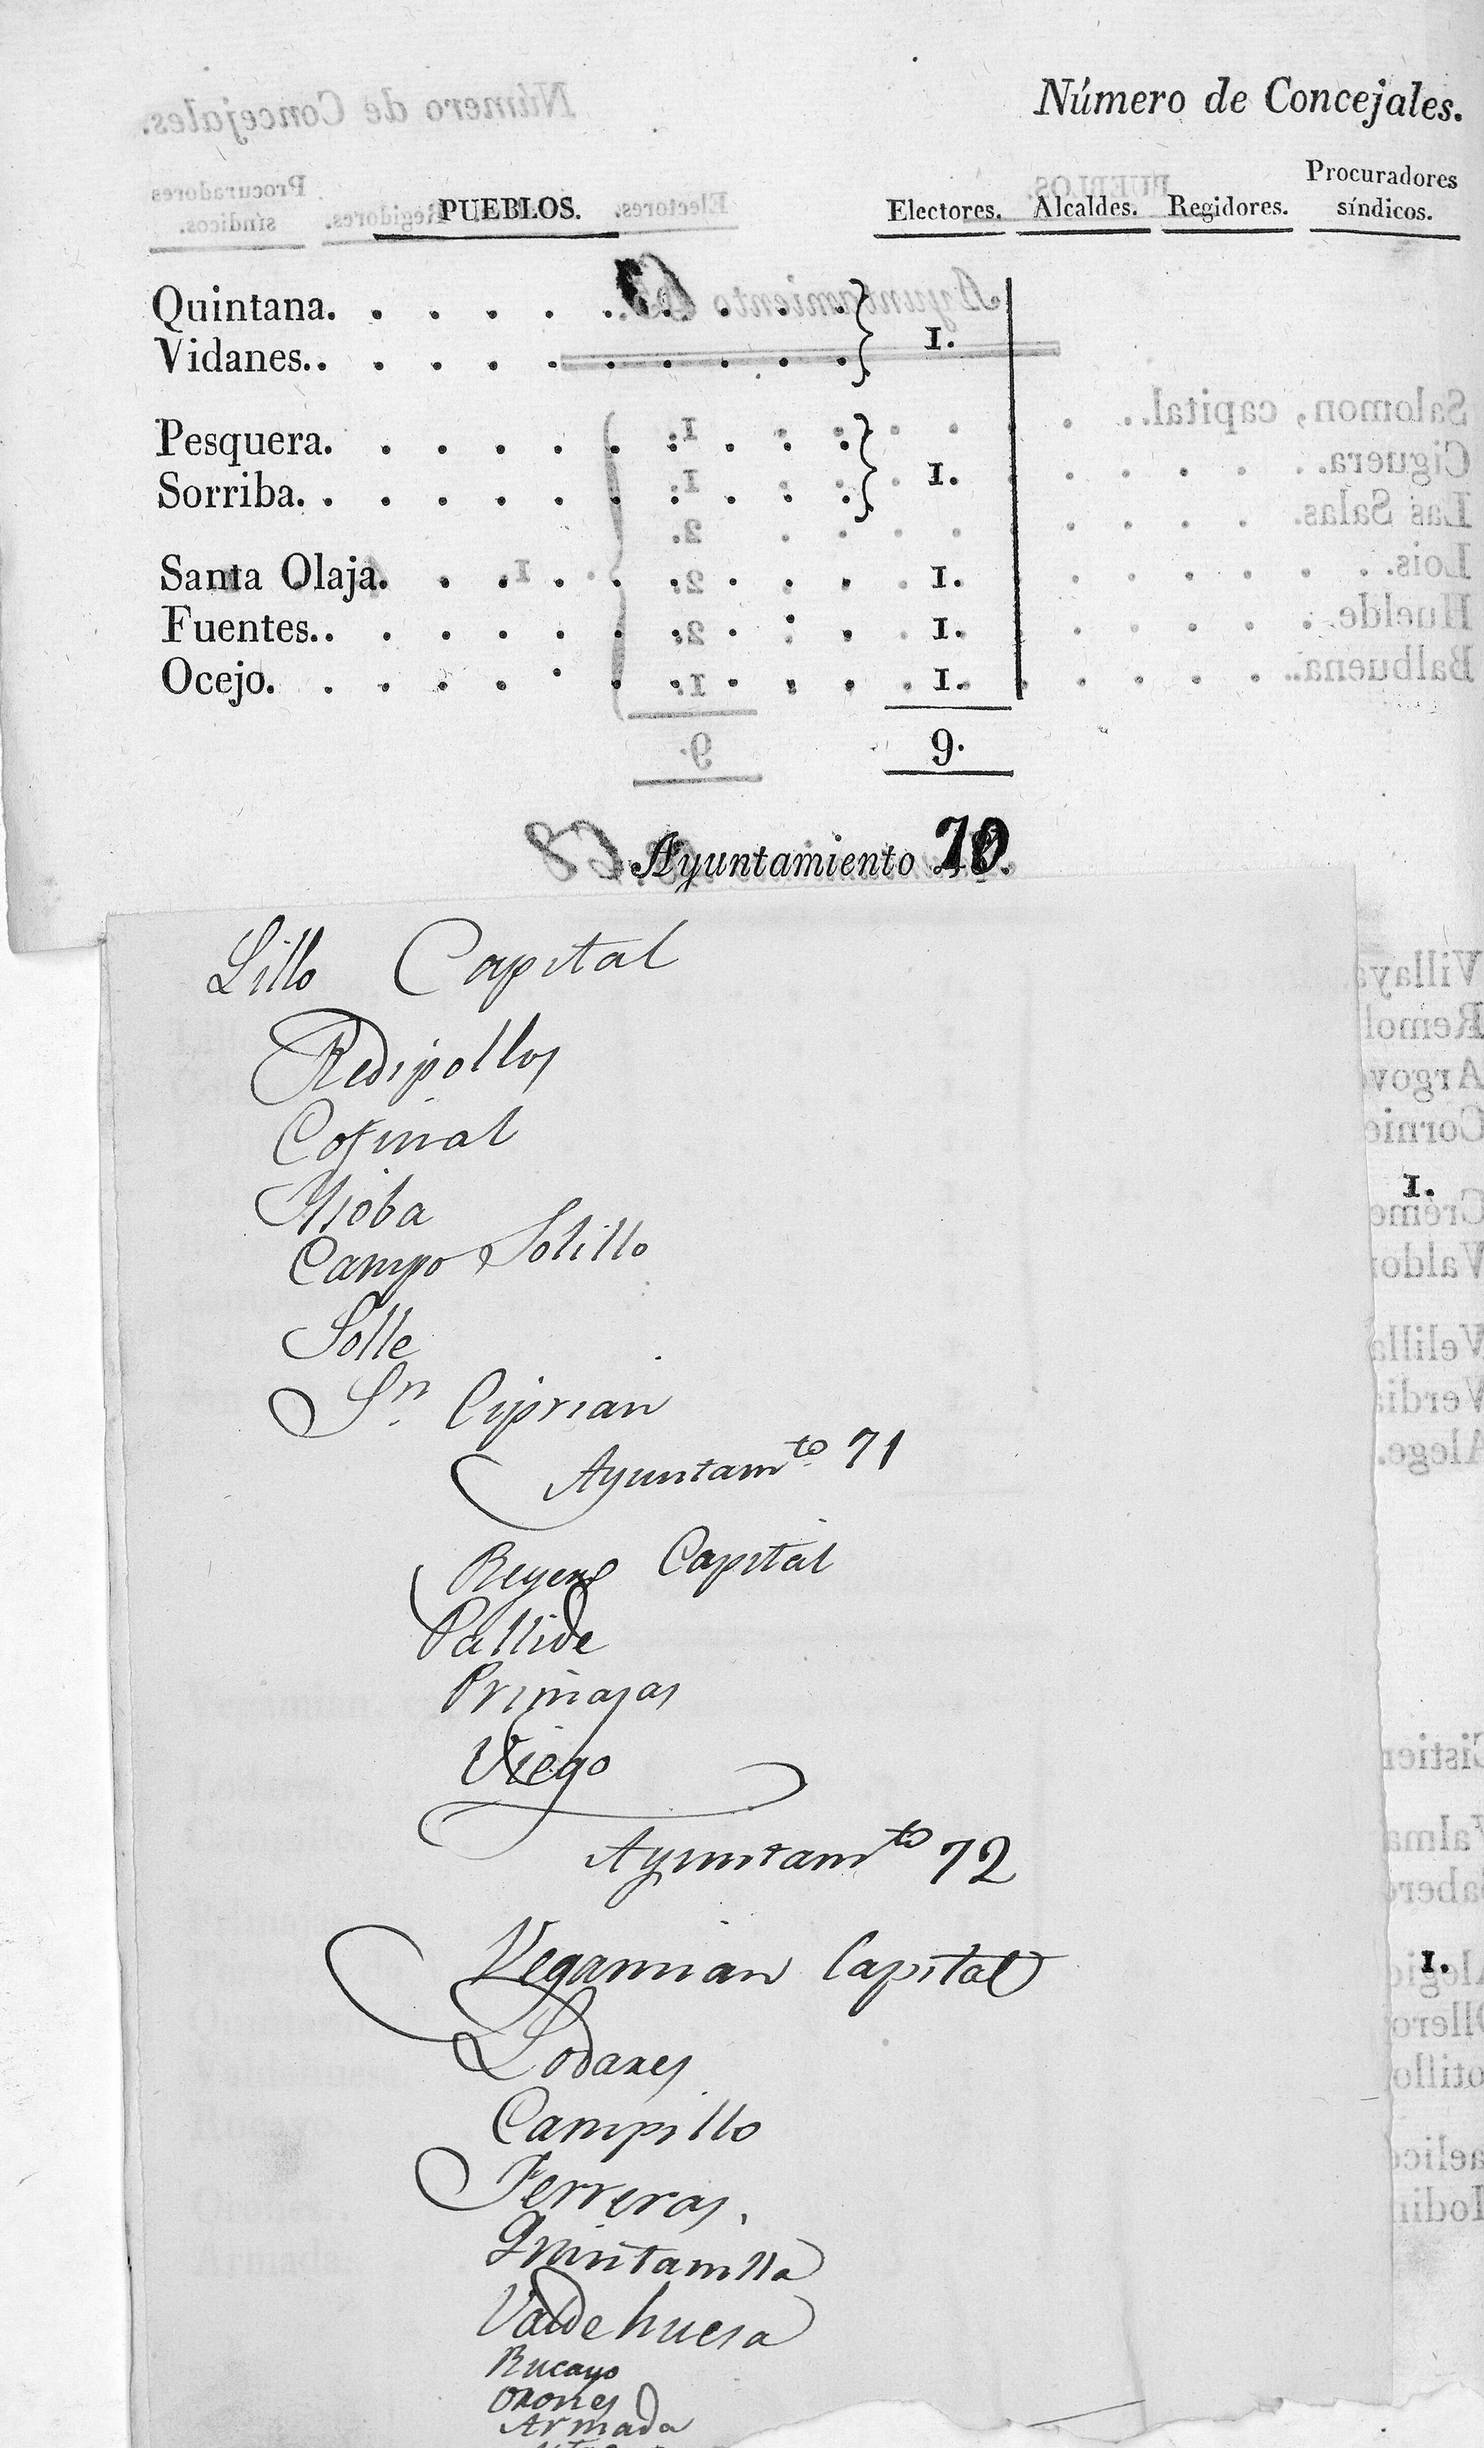 Número de Concejales.
PUEBLOS. Electores. Alcaldes. Regidores. Procuradores síndicos.
Quintana. . . . . . . . . .
Vidanes. . . . . . . . . . } 1.
Pesquera. . . . . . . . . .
Sorriba. . . . . . . . . . } 1.
Santa Olaja. . . . . . . . . 1.
Fuentes. . . . . . . . . . 1.
Ocejo. . . . . . . . . . . 1.
9.
Ayuntamiento 70.
Lillo Capital
Redipollos
Cofinal
Isoba
Campo Solillo
Solle
Sn. Ciprian
1.
Ayuntamto 71
Reyero Capital
Pallide
Primajas
Viego
Ayuntamto 72
Vegamian Capital
1.
Lodares
Campillo
Ferreras.
Quintanilla
Valdehuesa
Rucayo
Orones
Armada